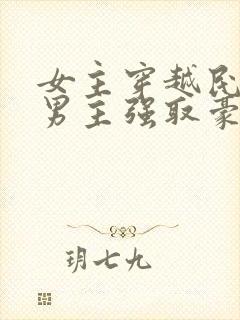 女主穿越民
男主强取豪
玥七九